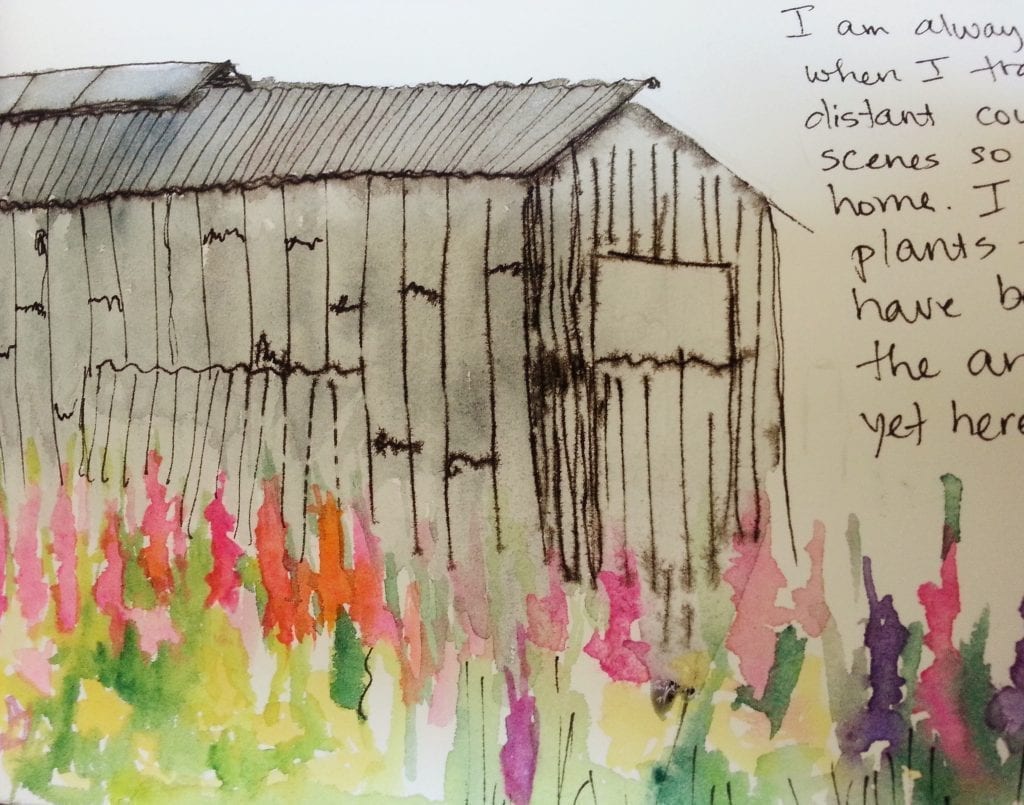 I am alway
when I tra
distant cou
scenes so
home. I
plants
have b
the ar
yet here